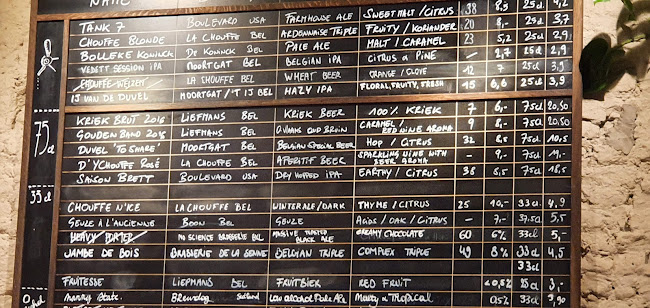 NAME
TANK 7 BOULEVARD USA FARMHOUSE ALE SWEET MALT / CITRUS 38 8,5 25cl 4,2
CHOUFFE BLONDE LA CHOUFFE BEL ARDENNAISE TRIPLE FRUITY / KORIANDER 20 8,- 25cl 3,7
BOLLEKE KONINCK DE KONINCK BEL PALE ALE MALT / CARAMEL 23 5,2 25cl 2,9
VEDETT SESSION IPA MOORTGAT BEL BELGIAN IPA CITRUS & PINE - 2,7 25cl
CHOUFFE WEIZEN LA CHOUFFE BEL WHEAT BEER ORANGE / CLOVE 12 7 25cl 3,9
IJ VAN DE DUVEL MOORTGAT / 'T IJ BEL HAZY IPA FLORAL, FRUITY, FRESH 45 6,6 25cl 3,9
75cl
KRIEK BRUT 2016 LIEFMANS BEL KRIEK BEER 100% KRIEK 7 6,- 75cl 20,50
GOUDEN BAND 2015 LIEFMANS BEL OUD BRUIN CARAMEL / RED WINE AROMA 9 8,- 75cl 20,50
DUVEL 'TO SHARE' MOORTGAT BEL BELGIAN SPECIAL BEER HOP / CITRUS 32 75cl 18,5
D'YCHOUFFE ROSÉ LA CHOUFFE BEL APERITIF BEER SPARKLING WINE WITH BEER AROMA - 9,- 75cl
SAISON BRETT BOULEVARD USA DRY HOPPED IPA EARTHY / CITRUS 38 8,5 75cl 18,5
33cl
CHOUFFE N'ICE LA CHOUFFE BEL WINTERALE / DARK THYME / CITRUS 25 10,- 33cl 4,9
GEUZE À L'ANCIENNE BOON BEL GEUZE ACIDS / OAK / CITRUS - 7,- 37,5cl 5,5
HEAVY PORTER NO SCIENCE BEL MASSIVE TOASTED BLACK ALE CREAMY CHOCOLATE 60 6% 33cl 5,-
JAMBE DE BOIS BRASSERIE DE LA SENNE BELGIAN TRIPLE COMPLEX TRIPLE 49 8% 33cl 4,5
33cl
FRUITESSE LIEFMANS BEL FRUITBIER RED FRUIT <0,5% 25cl 3,-
Nanny State. Brewdog Scotland Low alcohol Pale Ale Malty & Tropical 0,5% 33cl 3,90